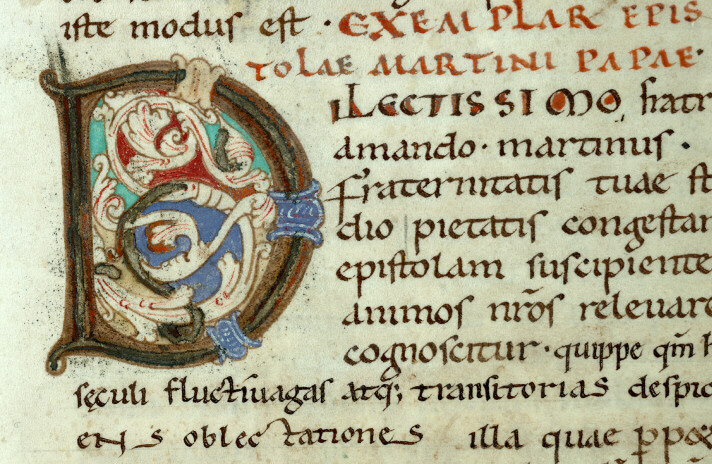 iste modus est · EXEMPLAR EPIS
TOLAE MARTINI PAPAE·
DILECTISSIMO fratr
amando· martinus·
Fraternitatis tuae st
dio pietatis congestam
epistolam suscipiente
animos nr̄os relevare
cognoscitur· quippe qm̄ h
sęculi fluctivagas atq; transitorias despic
ens oblectationes illa quae